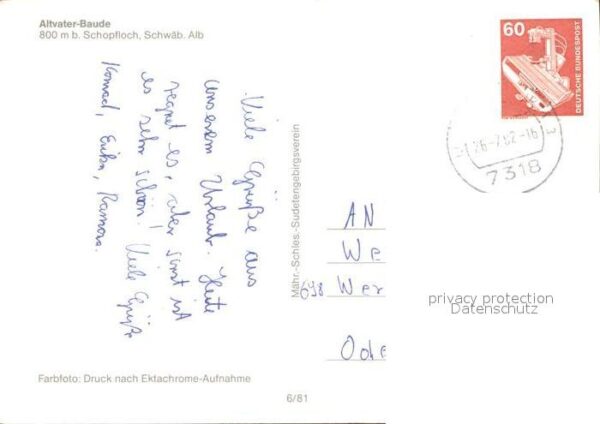 Altvater-Baude
800 m b. Schopfloch, Schwäb. Alb
60
DEUTSCHE BUNDESPOST
26-7.82-16
7318
Viele Grüße aus
unserem Urlaub. Heute
regnet es, aber sonst ist
es sehr schön! Viele Grüße
Konrad, Erika, Ramona.
Mähr.-Schles.-Sudetengebirgsverein
AN
We
698 Wer
Ode
privacy protection
Datenschutz
Farbfoto: Druck nach Ektachrome-Aufnahme
6/81